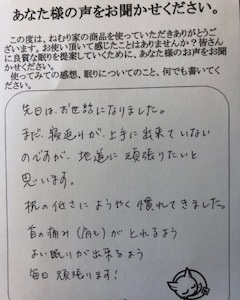 あなた様の声をお聞かせください。
この度は、ねむり家の商品を使っていただきありがとうご
ざいます。お使い頂いて感じたことはありませんか？皆さん
に良質な眠りを提案していくために、あなた様の声をお聞
かせください。
使ってみての感想、眠りについてのこと、何でも書いてく
ださい。
先日は、お世話になりました。
まだ寝返りが上手に出来ていない
のですが、地道に頑張りたいと
思います。
枕の低さにようやく慣れてきました。
首の痛み がとれるよう
よい眠りが出来るよう
毎日頑張ります！